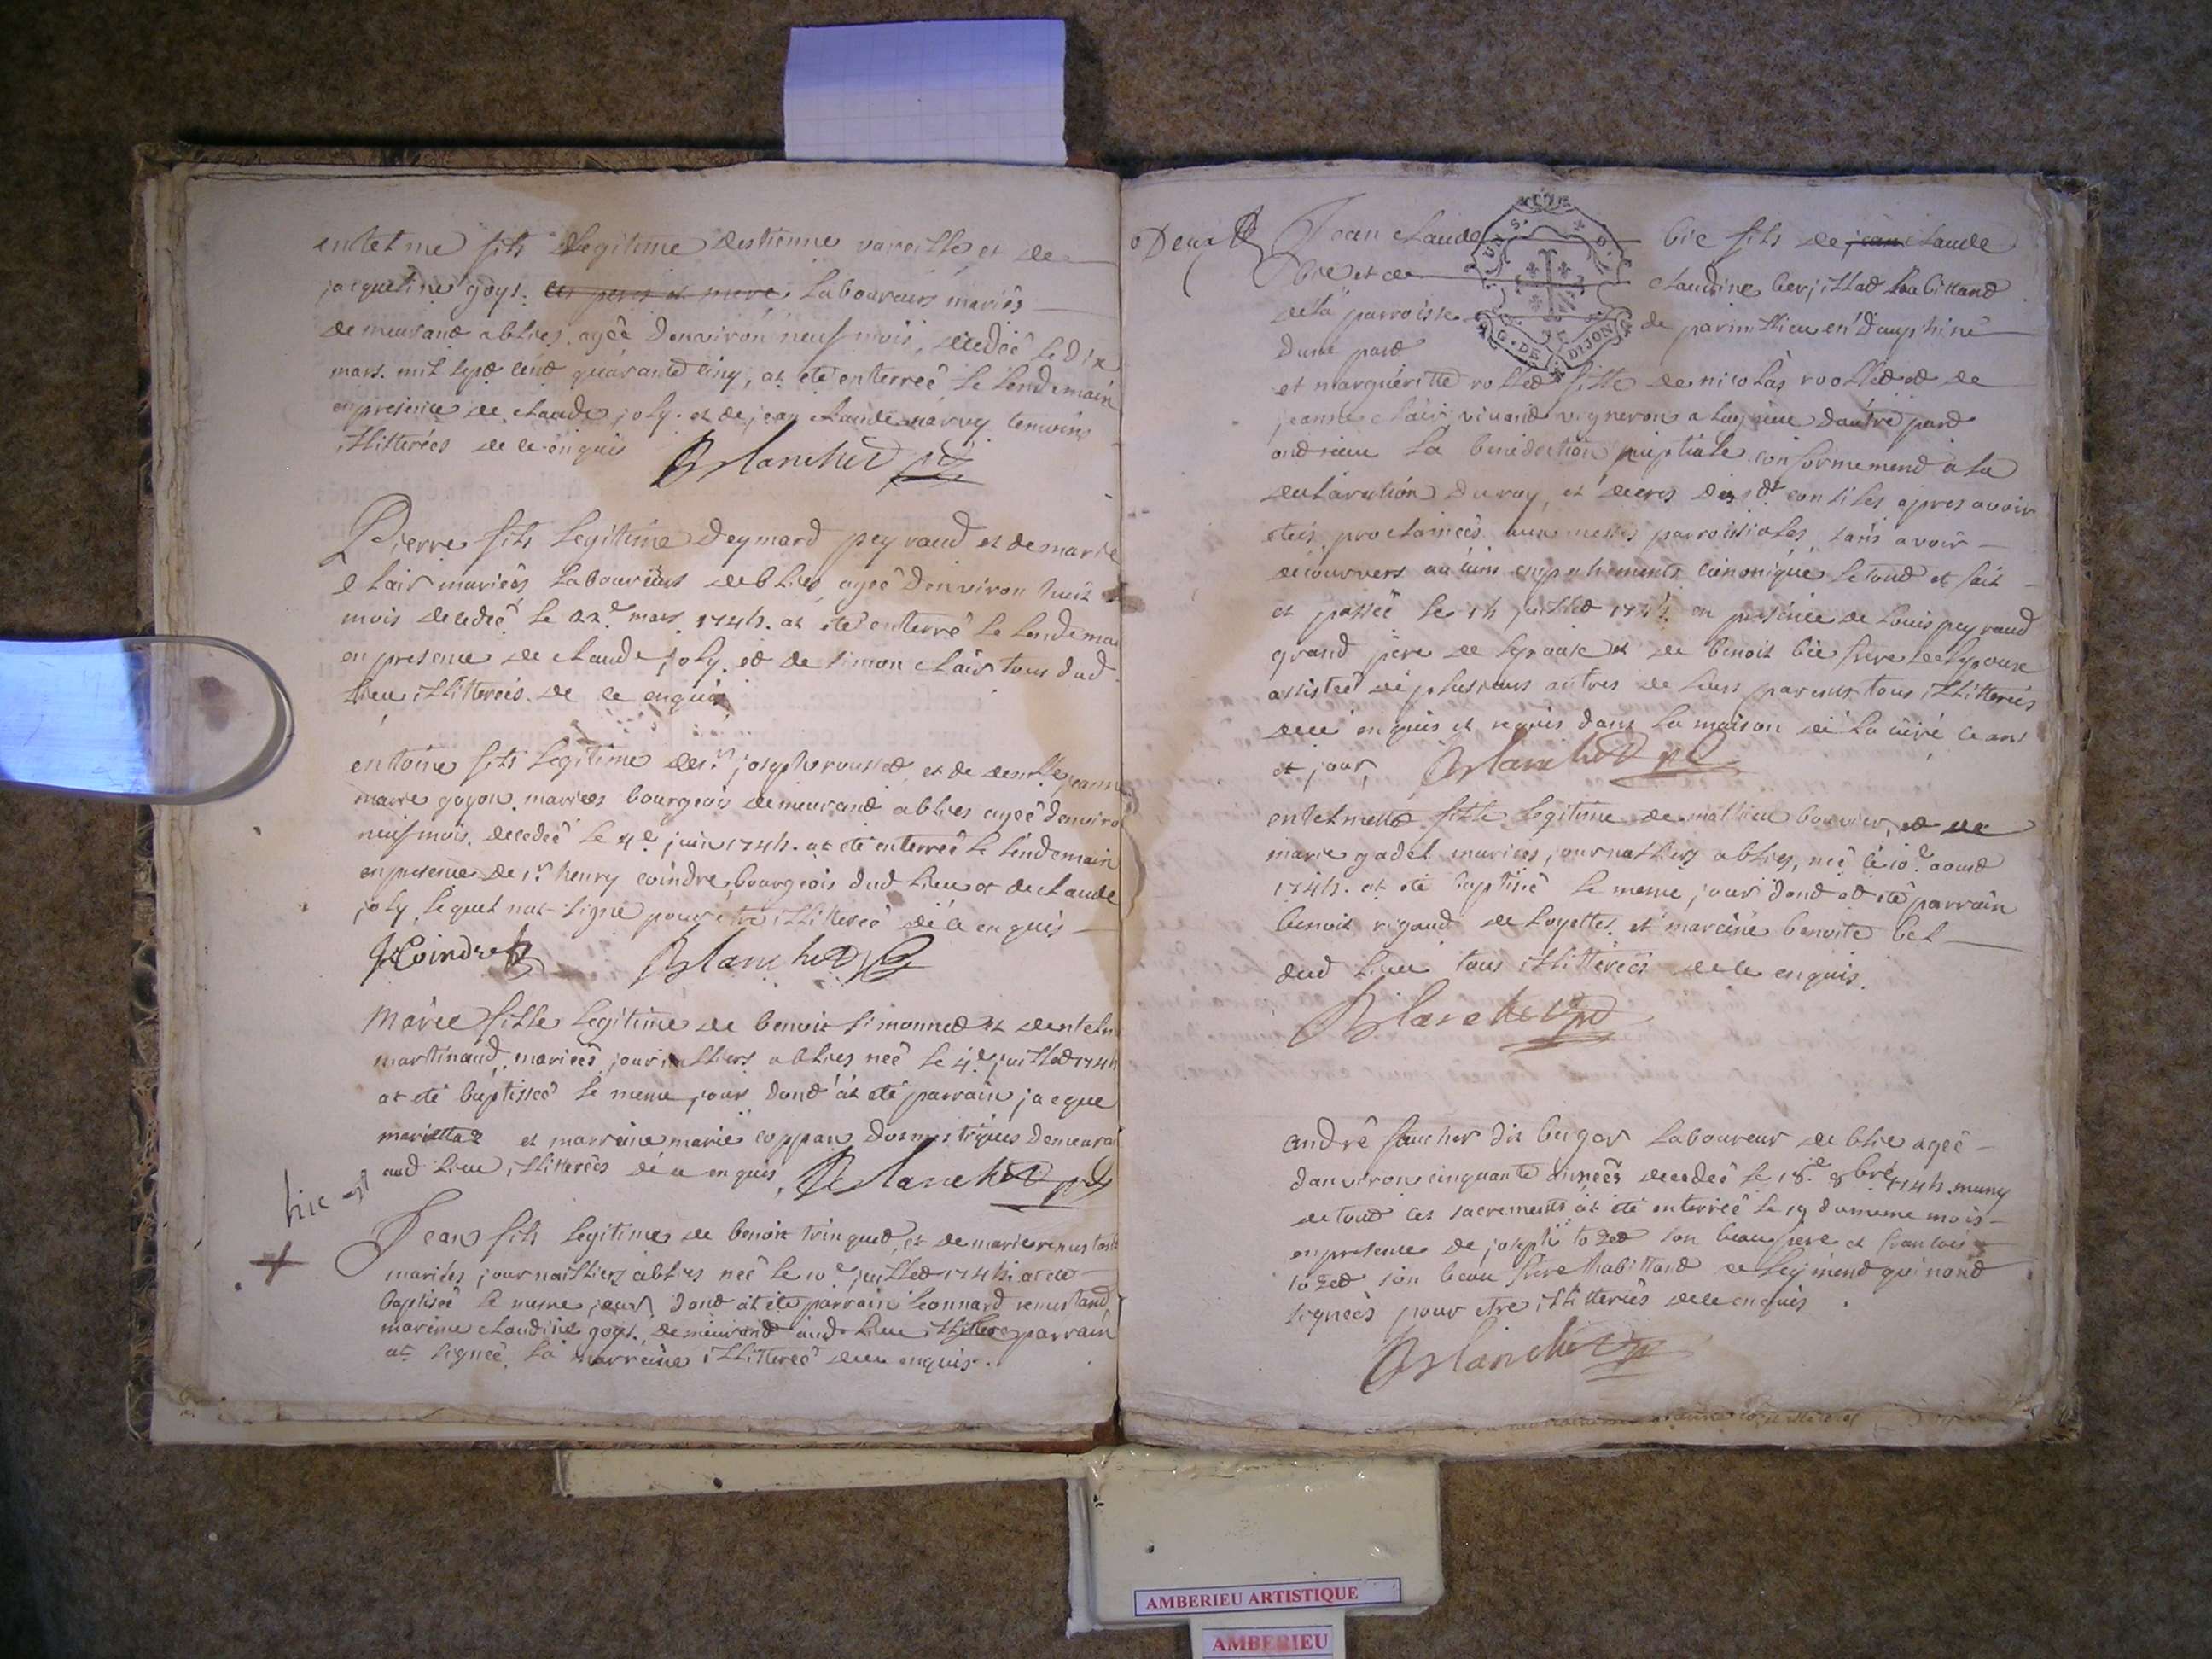 entelme fils legitime destienne vareille et de
jacqueline goys. les peres et mere laboureurs mariés
demeurand a blies, agéé denviron neuf mois, decedéé le dix
mars. mil sept cend quarante cinq, at eté enterréé le lendemain
en presence de claude joly. et de jean claude temoins
illitterées de ce enquis Blanchet
Pierre fils legittime deymard peyraud et de marie
clair mariéés laboureurs de blies, agéé denviron huit
mois decedéé le 22e mars 1745. at eté enterré le lendemai
en presence de claude joly. et de simon clair tous dud
lieu illitterées de ce enquis
entoine fils legitime de sr joseph rousset, et de demlle jeann
marie goyon mariees bourgeois demeurand a blies agéé denviro
neuf mois. decedéé le 4e juin 1745. at eté enterréé le lendemain
en presence de sr henry coindre bourgeois dud lieu et de claude
joly, lequel nat signé pour etre illitteréé de ce enquis
Coindre Blanchet
Marie fille legitime de benoit simonned et dentelm
martinaud, mariéés journalliers a blies néé le 4e juilled 1745
at eté baptisséé le meme jour dond at eté parrain jacque
mariettaz et marreine marie coppan domestiques demeuran
aud lieu, illitterées de ce enquis, Blanchet
hic est
Jean fils legitime de benoit trinqued, et de marie
mariées journalliers a blies néé le 10e juilled 1745. at eté
baptiséé le meme jour dond at eté parrain leonnard
mareine claudine goys. demeurand aud lieu parrain
at signéé la marreine illitteréé de ce enquis.
Deux
Jean claude bie fils de jean claude
bie et de claudine berjillad habittand
de la parroisse de parmillieu en dauphiné
dune pard
UNS.
G. DE DIJON
et marguéritte rolled fille de nicolas roolled et de
jeanne clair vivand vigneron a lagnieu dautre pard
ond recu la benediction nuptiale conformemend a la
declaration du roy, et decres des sts conciles apres avoir
etéés proclaméés aux messes parroissiales, sans avoir
decouvers aucuns empechements canonique le toud et fait
et passéé le 15 juilled 1745. en presence de louis peyraud
grand pere de lepouse et de benoit bie frere de lepoux
assistéé de plusieurs autres de leurs parens tous illitterés
de ce enquis et requis dans la maison de la cure ce ans
et jour, Blanchet
entelmette fille legitime de mathieu bouvier, et de
marie gadel mariées journalliers a blies, néé le 10e aoust
1745. at eté baptiséé le meme jour dond at eté parrain
benoit rigaud de loyettes. et mareine benoite bel
dud lieu tous illitterées de ce enquis.
Blanchet
andré faucher dit bugor laboureur de blie agéé
danviron cinquante années decedéé le 18e 8bre 1745. muny
de toud ces sacrements at eté enterréé le 19 du meme mois
en presence de joseph tozed son beau pere et francois
tozed son beau frere habittand de leymend qui nond
signéés pour etre illitterées de ce enquis.
Blanchet
AMBERIEU ARTISTIQUE
AMBERIEU